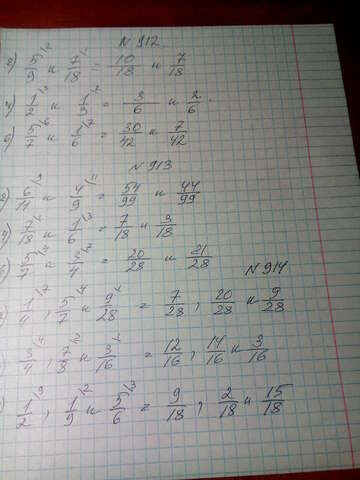 N 912
2) 5/9 и 7/18 = 10/18 и 7/18
4) 1/2 и 1/3 = 3/6 и 2/6.
6) 5/7 и 1/6 = 30/42 и 7/42
N 913
2) 6/11 и 4/9 = 54/99 и 44/99
4) 7/18 и 1/6 = 7/18 и 3/18
5/7 и 3/4 = 20/28 и 21/28
N 914
1/4, 5/7 и 9/28 = 7/28, 20/28 и 9/28
3/4, 7/8 и 3/16 = 12/16, 14/16 и 3/16
1/2, 1/9 и 5/6 = 9/18, 2/18 и 15/18